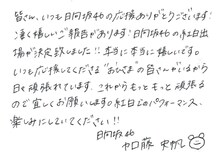 皆さん、いつも日向坂46の応援ありがとうございます!
凄く嬉しいご報告があります!日向坂46の紅白出
場が決定致しました!!本当に本当に嬉しいです。
いつも応援してくださる"おひさま"の皆さんがいるから
日々頑張れています。これからももっともっと頑張る
ので宜しくお願いします。紅白でのパフォーマンス、
楽しみにしていてください!!
日向坂46
加藤 史帆